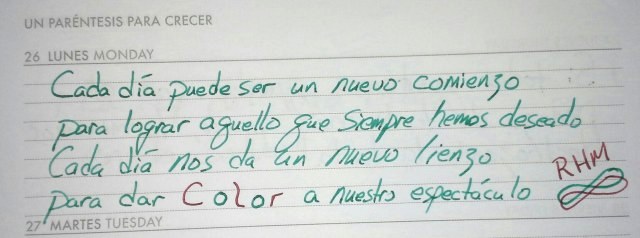 UN PARÉNTESIS PARA CRECER
26 LUNES MONDAY
Cada día puede ser un nuevo comienzo
para lograr aquello que siempre hemos deseado
Cada día nos da un nuevo lienzo
RHM
para dar Color a nuestro espectáculo
27 MARTES TUESDAY